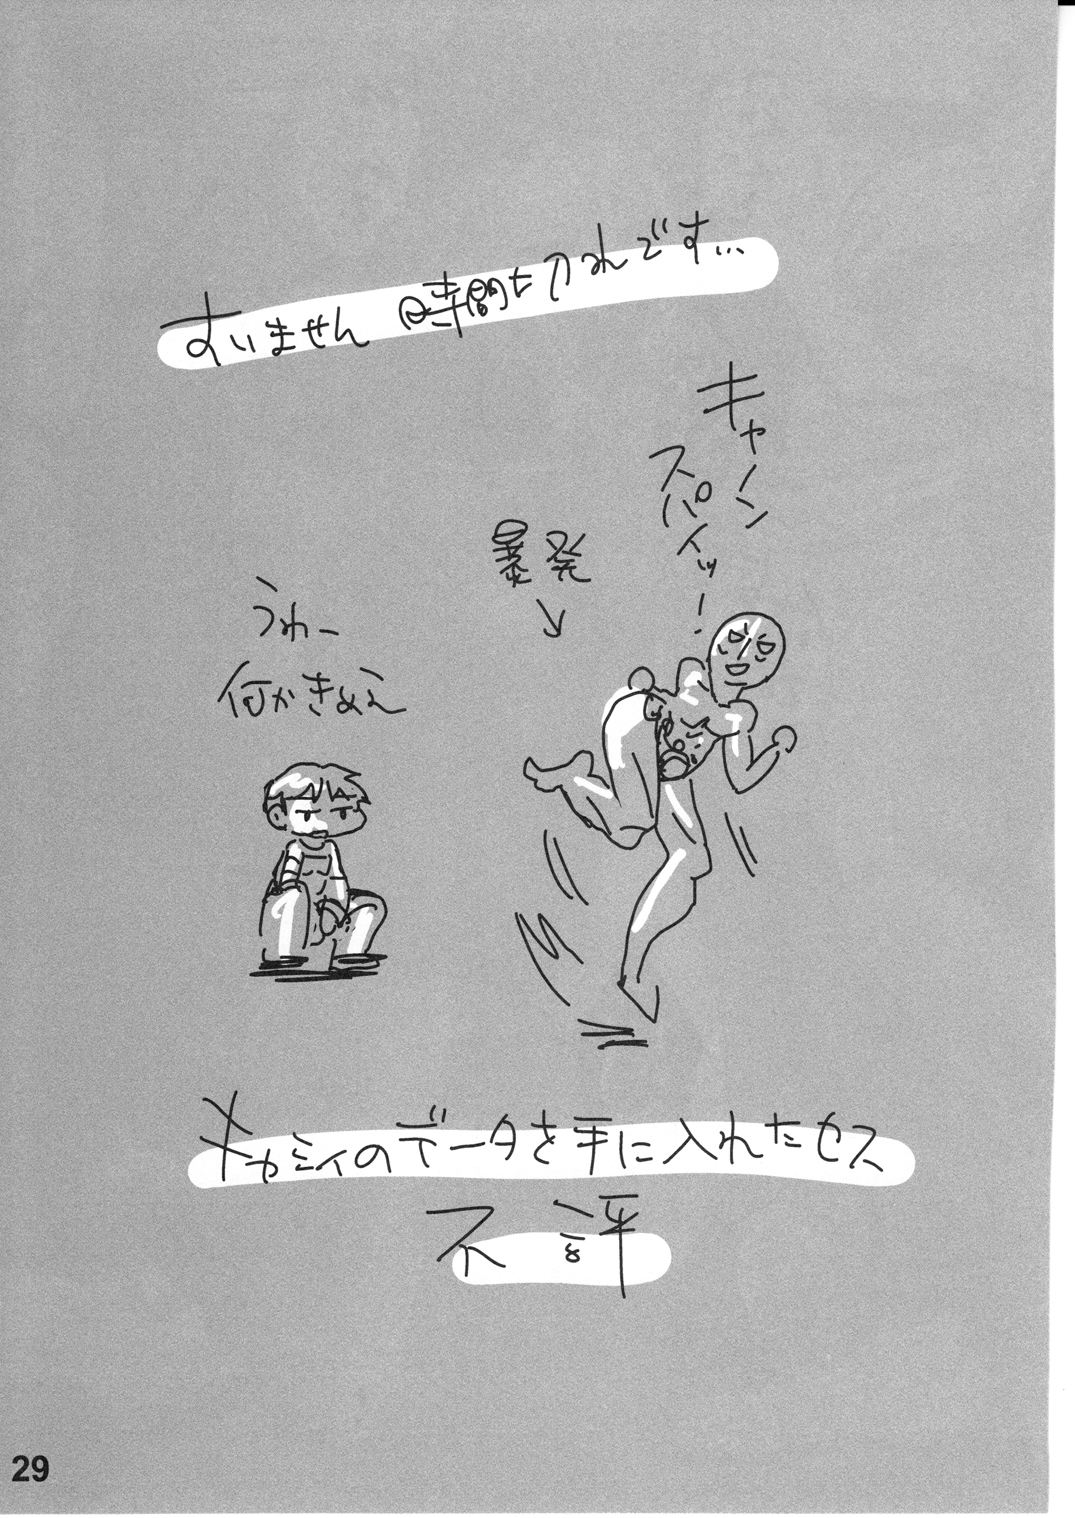 すいません時間切れです…
キャノン
スパイッ!
暴発
うわー
何かきめえ
キャミィのデータを手に入れたセス
不評
29